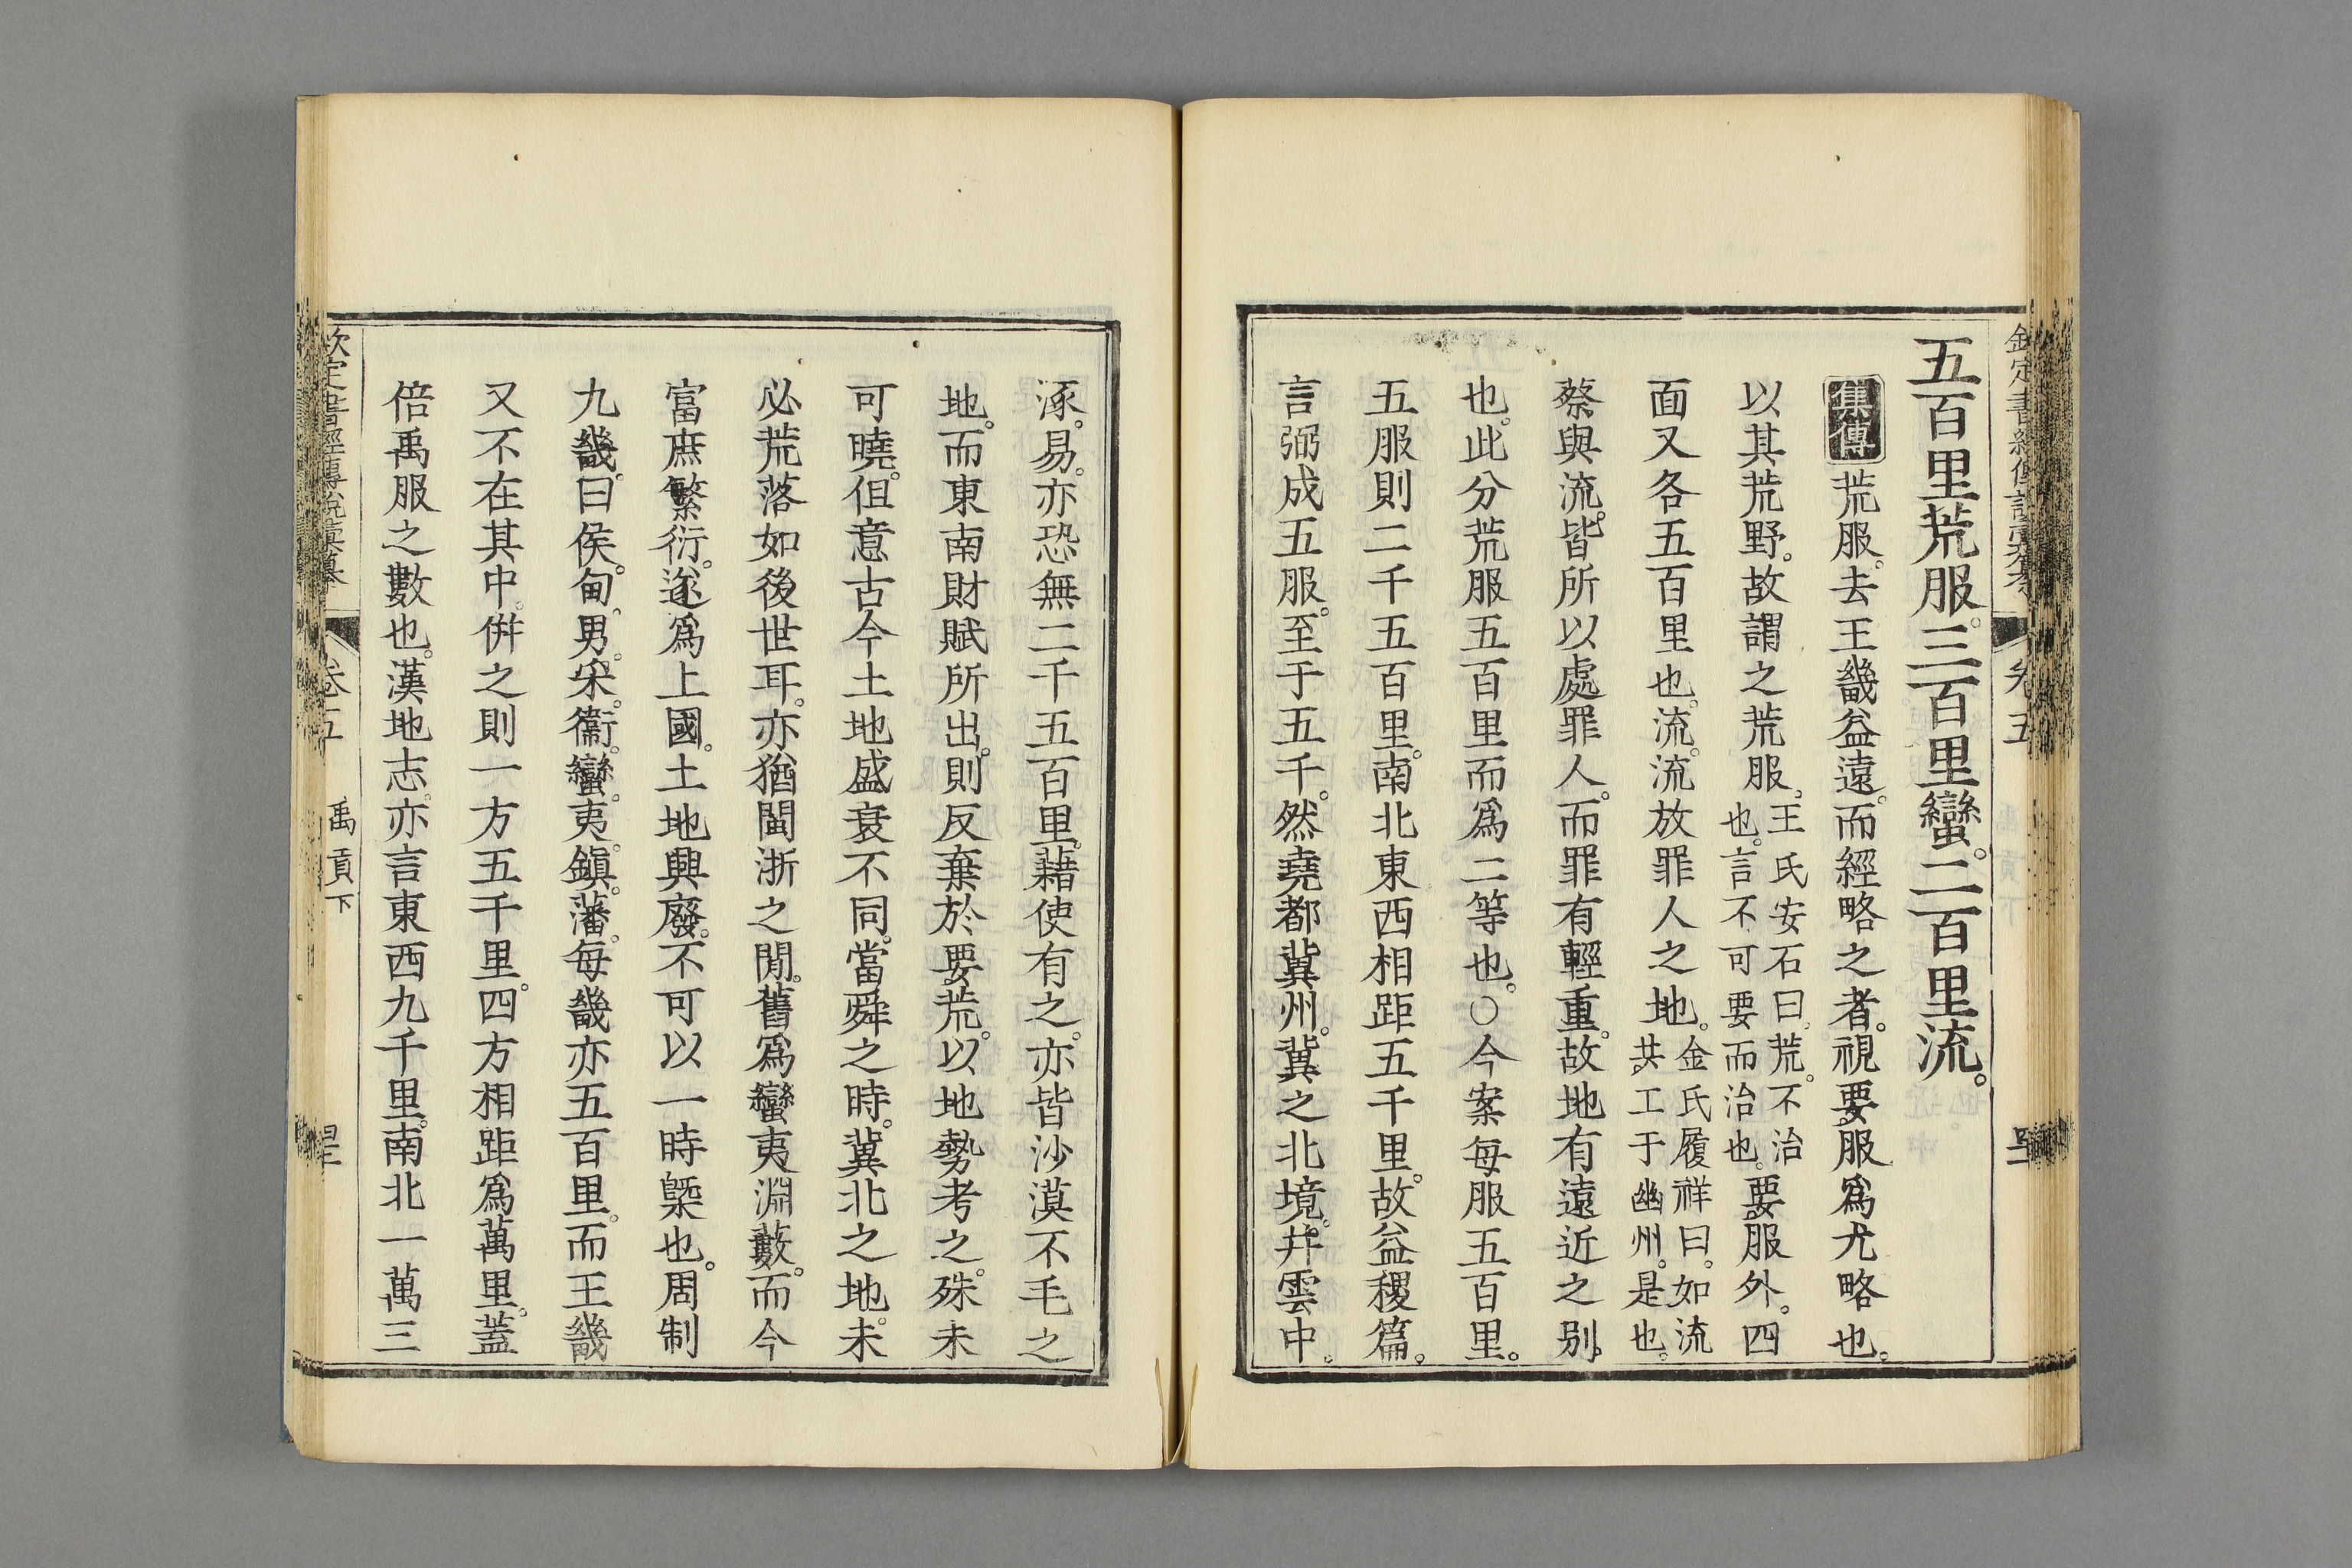 五百里荒服。三百里蠻。二百里流。
集傳 荒服。去王畿益遠。而經略之者。視要服爲尤略也。
以其荒野。故謂之荒服。王氏安石曰。荒。不治也。言不可要而治也。要服外。四
面又各五百里也。流。流放罪人之地。金氏履祥曰。如流共工于幽州。是也。
蔡與流。皆所以處罪人。而罪有輕重。故地有遠近之別。
也。此分荒服五百里而爲二等也。○今案每服五百里。
五服則二千五百里。南北東西相距五千里。故益稷篇。
言弼成五服。至于五千。然堯都冀州。冀之北境。并雲中。
涿。易。亦恐無二千五百里。藉使有之。亦皆沙漠不毛之
地。而東南財賦所出。則反棄於要荒。以地勢考之。殊未
可曉。但意古今土地盛衰不同。當舜之時。冀北之地。未
必荒落如後世耳。亦猶閩浙之閒。舊爲蠻夷淵藪。而今
富庶繁衍。遂爲上國。土地興廢。不可以一時槩也。周制
九畿。曰侯。甸。男。采。衞。蠻。夷。鎭。藩。每畿亦五百里。而王畿
又不在其中。併之則一方五千里。四方相距爲萬里。蓋
倍禹服之數也。漢地志。亦言東西九千里。南北一萬三
欽定書經傳說彙纂 卷五 禹貢下